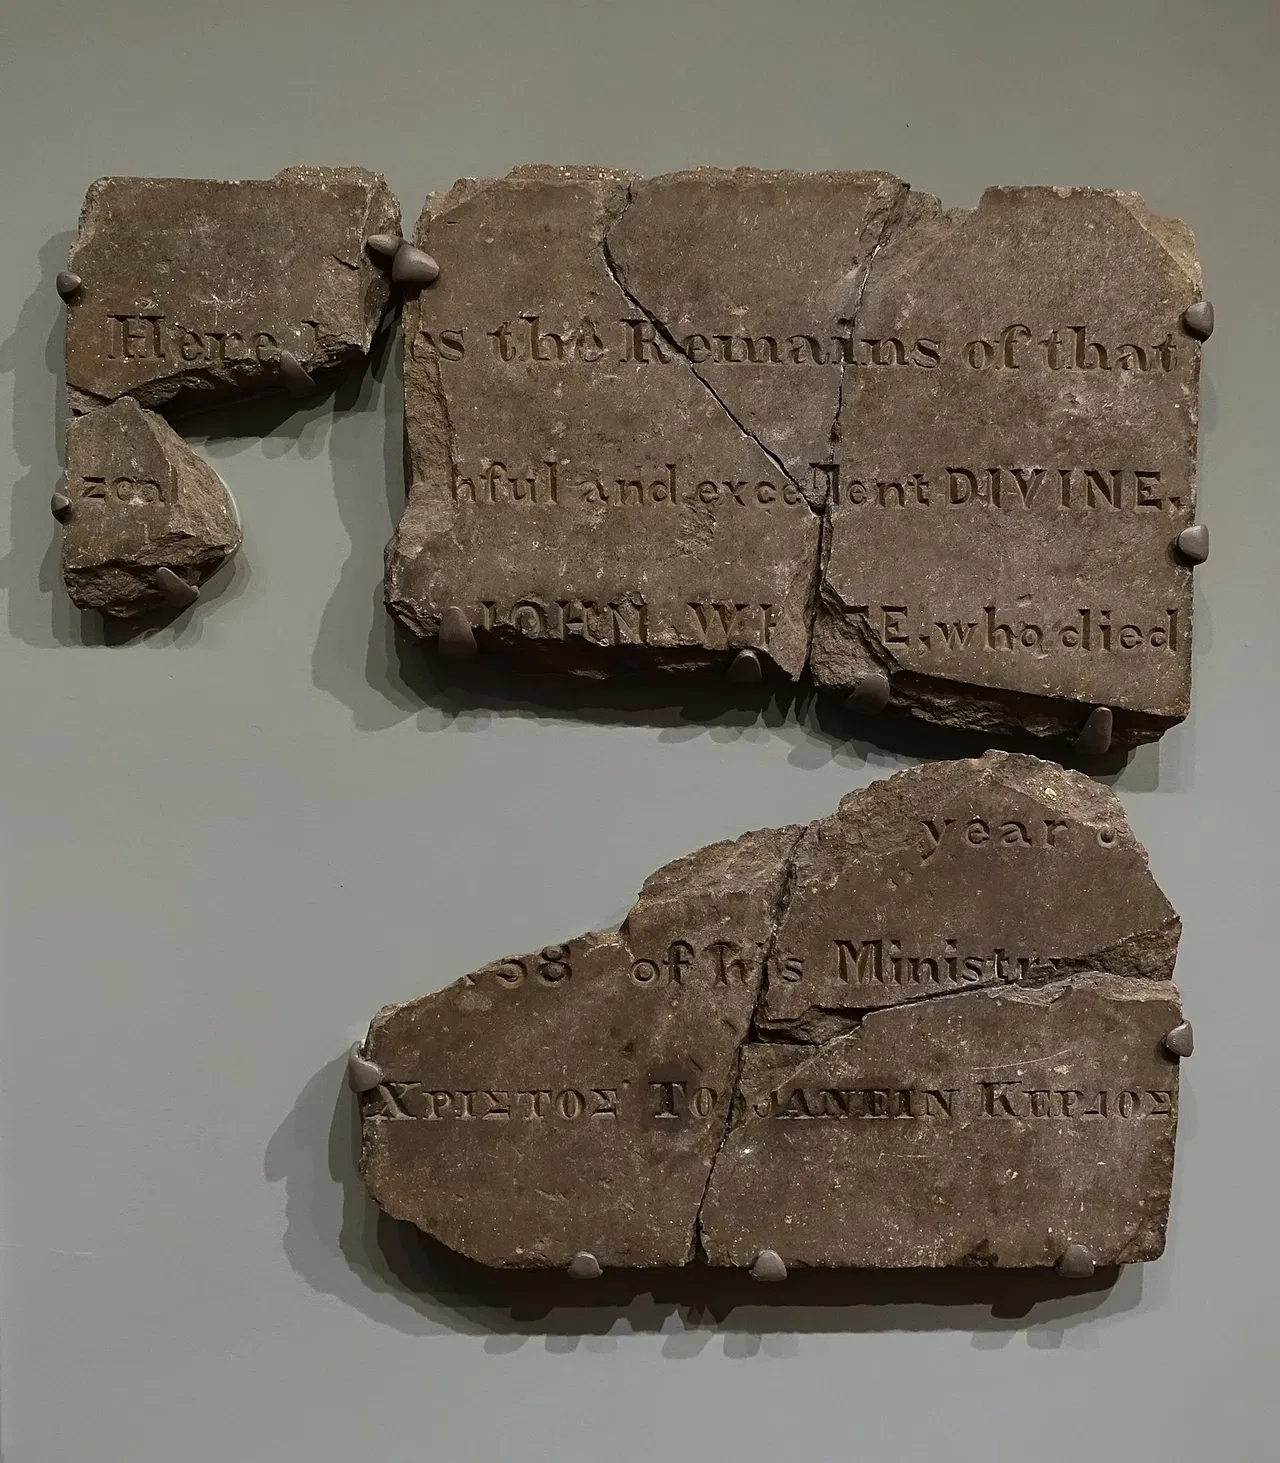 Here lyes the Remains of that
zeal hful and excellent DIVINE,
JOHN WHITE, who died
year o
38 of his Ministry
ΧΡΙΣΤΟΣ ΤΟ ΑΝΕΙΝ ΚΕΡΔΟΣ